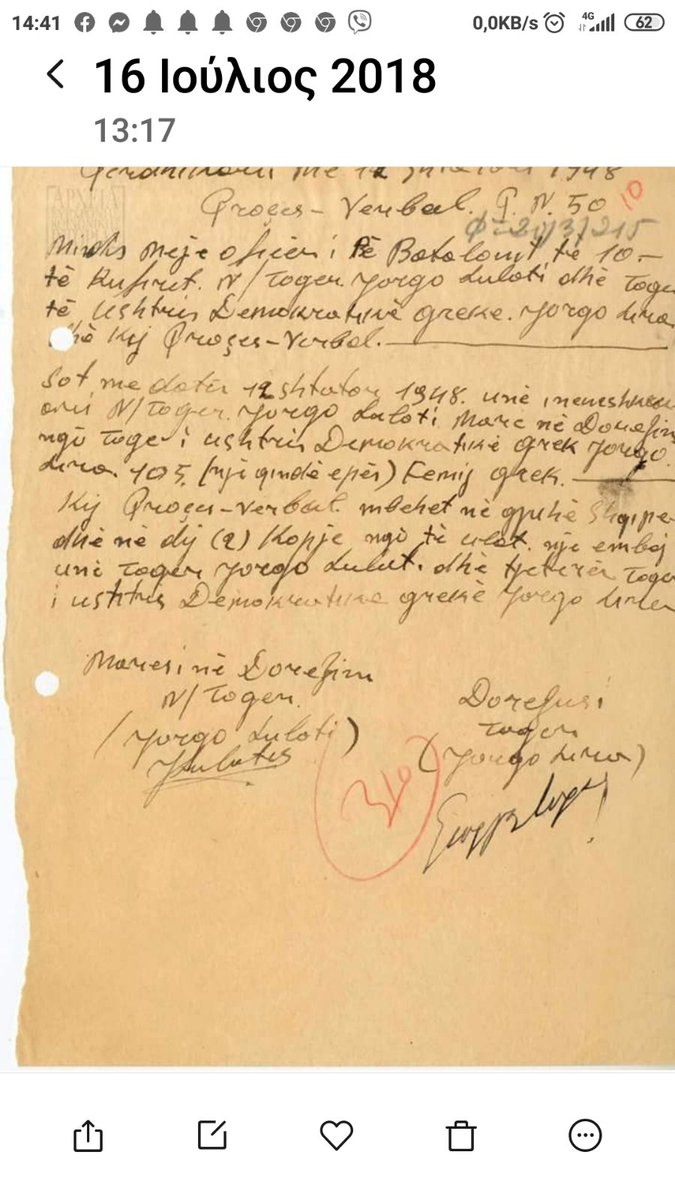 14:41 0,0KB/s 4G 62
16 Ιούλιος 2018
13:17
me 12 1948
Proçes-Verbal. P. N. 50 10
Φ=20/3/215
Midis meje oficer i Batalonit të 10-
të Kufirit. N/Toger. Jorgo Luloti dhe Toger
të Ushtris Demokratike greke. Jorgo
Kij Proçes-Verbal.
Sot, me datën 12 shtator 1948. unë i
N/Toger. Jorgo Luloti Mare në Dorezim
ngo Toger i ushtris Demokratikë grek Jorgo.
105, (një qindë e pës) Femij grek.
Kij Proçes-verbal. mbehet në gjuhë Shqipe
dhe në dij (2) Kopje ngo të një
unë Toger Jorgo Lulot. dhe tjetërën Toger
i ushtris Demokratike grekë Jorgo
Maresi në Dorezim
N/Toger.
(Jorgo Luloti)
Dorezusi
Toger
(Jorgo
310